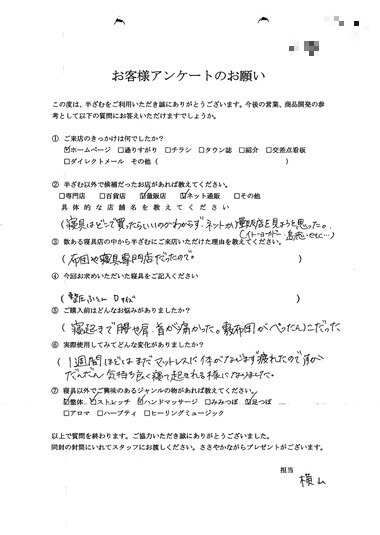 お客様アンケートのお願い
この度は、半ざむをご利用いただき誠にありがとうございます。今後の営業、商品開発の参
考として以下の質問にお答えいただけますでしょうか。
① ご来店のきっかけは何でしたか?
☑ホームページ □通りすがり □チラシ □タウン誌 □紹介 □交差点看板
□ダイレクトメール その他( )
② 半ざむ以外で候補だったお店があれば教えてください。
□専門店 □百貨店 ☑量販店 ☑ネット通販 □その他
具体的な店舗名を教えてください
(寝具はどこで買ったらいいのかわからず、ネットか量販店を見ようと思った。
(イトーヨーカドー、島忠・etc…)
③ 数ある寝具店の中から半ざむにご来店いただけた理由を教えてください。
(布団や寝具専門店だったので。)
④ 今回お求めいただいた寝具をご記入ください
(整圧ふとん Dサイズ )
⑤ ご購入前はどんなお悩みがありましたか?
(寝起きで腰や肩、首が痛かった。敷布団がぺったんこだった
⑥ 実際使用してみてどんな変化がありましたか?
(1週間ほどはまだマットレスに体がなじまず疲れたのですが
だんだん気持ち良く寝て起きれる様になりました。
⑦ 寝具以外でご興味のあるジャンルの物があれば教えてください。
☑整体 ☑ストレッチ ☑ハンドマッサージ □みみつぼ ☑足つぼ
□アロマ □ハーブティ □ヒーリングミュージック
以上で質問を終わります。ご協力いただき誠にありがとうございました。
同封の封筒にいれてスタッフにお渡しください。ささやかながらプレゼントがございます。
担当
横山